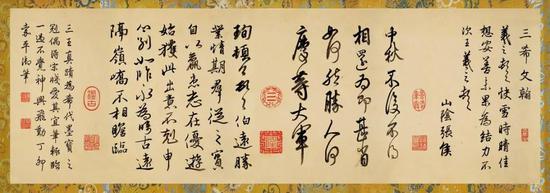 三希文翰
羲之頓首快雪時晴佳
想安善未果為結力不
次王羲之頓首
山陰張侯
中秋不復不得
相還為即甚省
如何然勝人何
慶等大軍
珣頓首頓首伯遠勝
業情期群從之寶
自以羸患志在優遊
始獲此出意不剋申
分別如昨永為疇古遠
隔嶺嶠不相瞻臨
三王真蹟為希代墨寶之
冠偶得宋牋愛其宜筆
一過不覺神興飛動丁卯
嘉平御筆